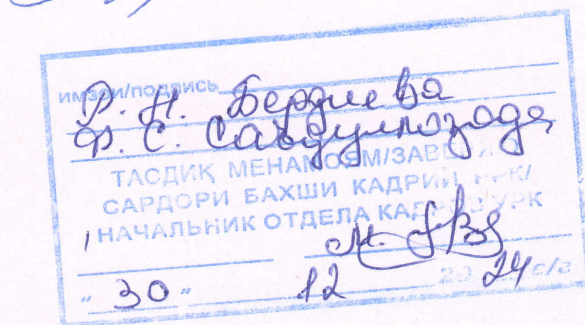 ИМЗОИ/ПОДПИСЬ
Р. Н. Бердиева
Ф. С. Саъдуллозода
ТАСДИҚ МЕНАМОЯМ/
САРДОРИ БАХШИ КАДРИИ
НАЧАЛЬНИК ОТДЕЛА
" 30 " 12 20 24 с/г